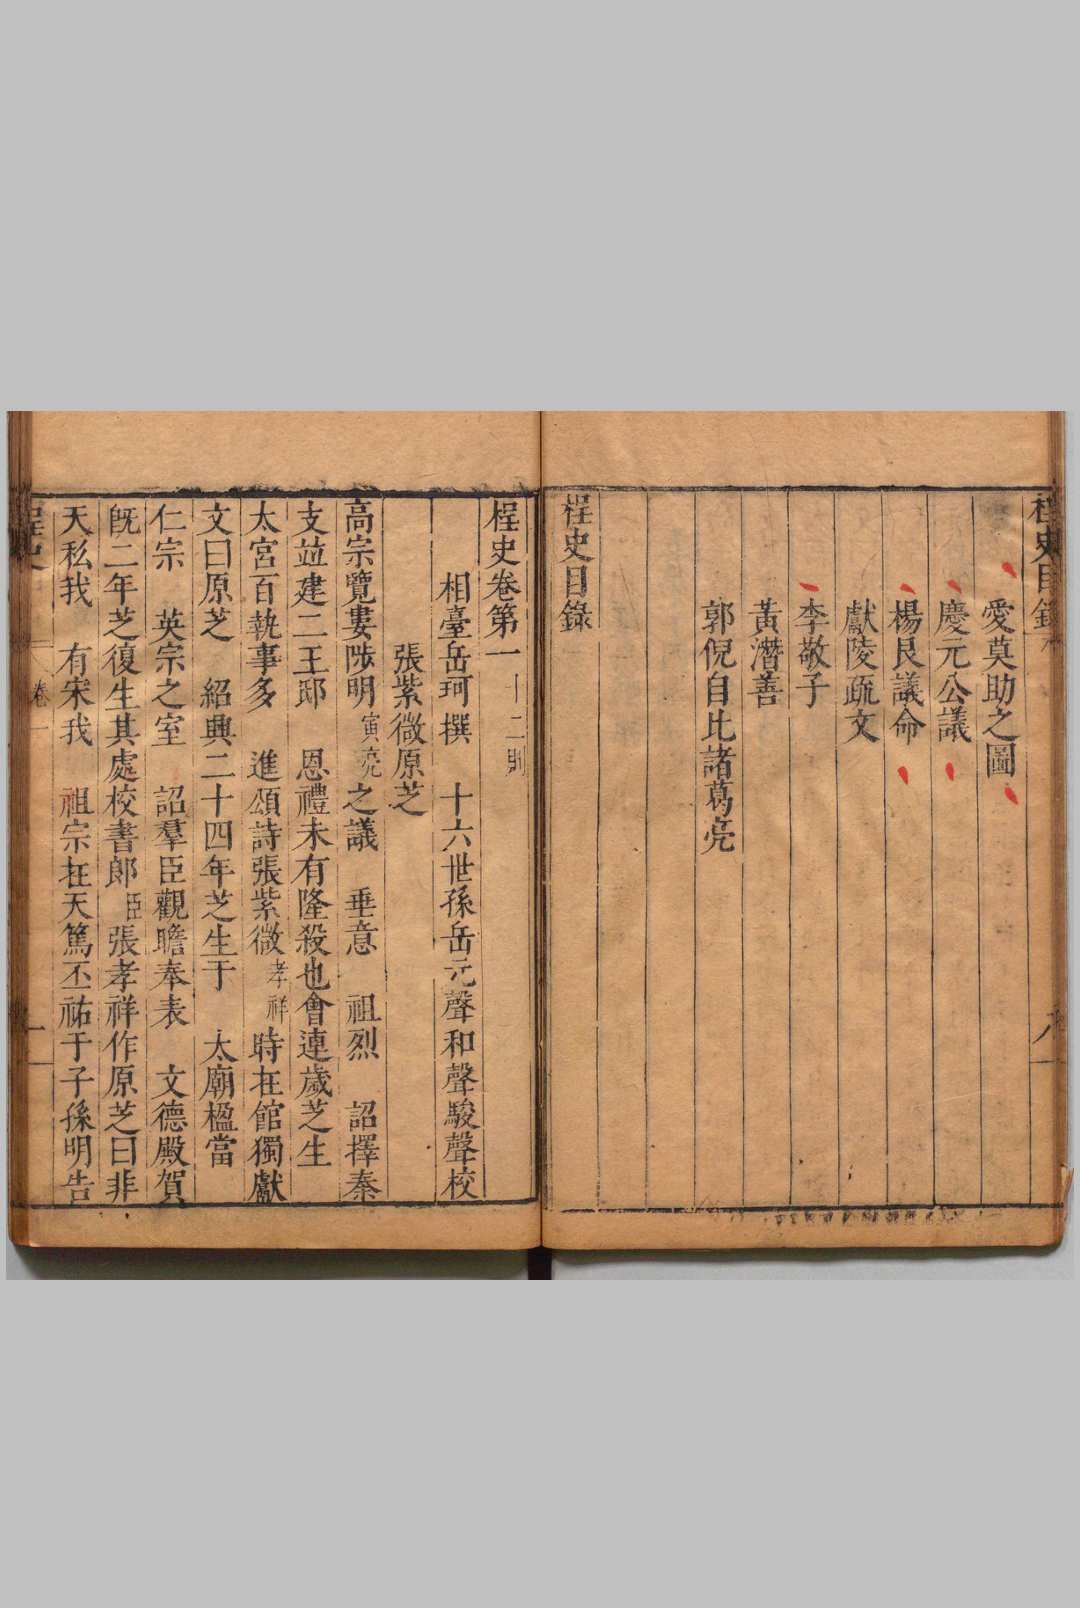 桯史目錄
愛莫助之圖
慶元公議
楊艮議命
獻陵疏文
李敬子
黃潛善
郭倪自比諸葛亮
桯史目錄
桯史卷第一 十二則
相臺岳珂撰 十六世孫岳元聲和聲駿聲校
張紫微原芝
高宗覽婁陟明寅亮之議 垂意 祖烈 詔擇秦
支竝建二王邸 恩禮未有隆殺也會連歲芝生
太宮百執事多 進頌詩張紫微孝祥時在館獨獻
文曰原芝 紹興二十四年芝生于 太廟楹當
仁宗 英宗之室 詔羣臣觀瞻奉表 文德殿賀
旣二年芝復生其處校書郎臣張孝祥作原芝曰非
天私我 有宋我 祖宗在天篤丕祐于子孫明告
桯史 卷一 一